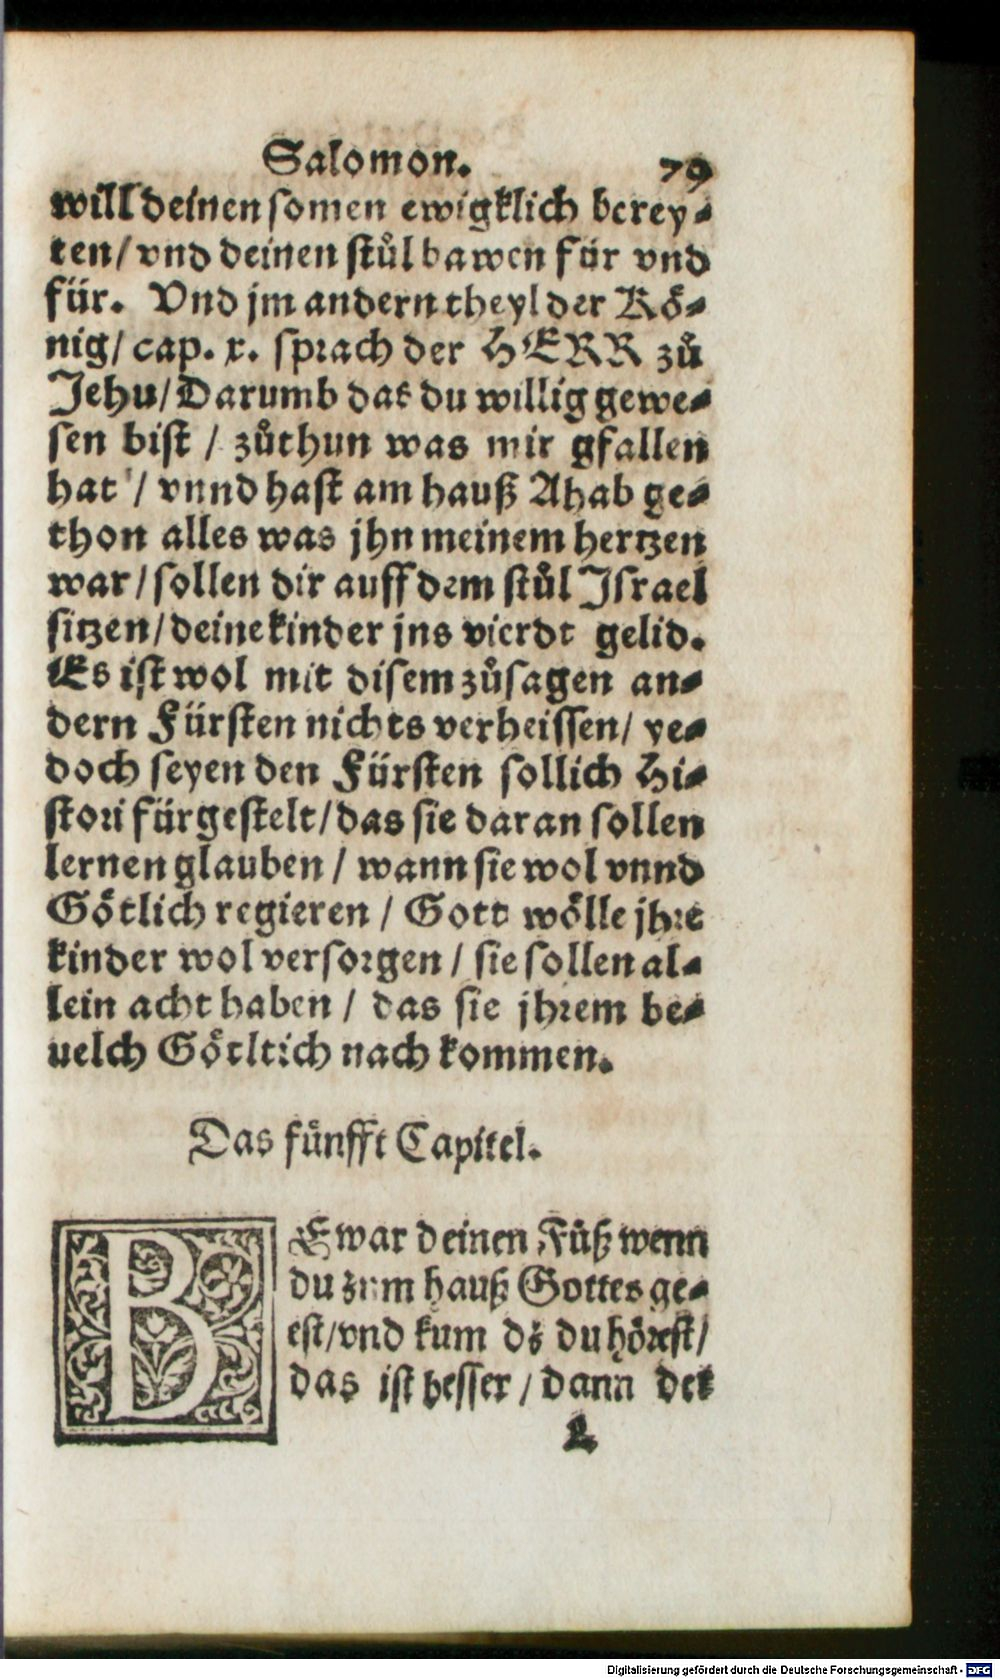 Salomon. 79
will deinen somen ewigklich berey⸗
ten/ vnd deinen stůl bawen für vnd
für. Vnd jm andern theyl der Kö⸗
nig/ cap. x. sprach der HERR zů
Jehu/ Darumb das du willig gewe⸗
sen bist / zůthun was mir gfallen
hat / vnnd hast am hauß Ahab ge⸗
thon alles was jhn meinem hertzen
war/ sollen dir auff dem stůl Israel
sitzen/ deine kinder jns vierdt gelid.
Es ist wol mit disem zůsagen an⸗
dern Fürsten nichts verheissen/ ye⸗
doch seyen den Fürsten sollich Hi⸗
stori fürgestelt/ das sie daran sollen
lernen glauben / wann sie wol vnnd
Götlich regieren / Gott wölle jhre
kinder wol versorgen / sie sollen al⸗
lein acht haben / das sie jhrem be⸗
uelch Götltich nach kommen.
Das fünfft Capitel.
BEwar deinen Füß wenn
du zum hauß Gottes ge⸗
est/ vnd kum dz du hörest/
das ist besser / dann der
L
Digitalisierung gefördert durch die Deutsche Forschungsgemeinschaft - DFG